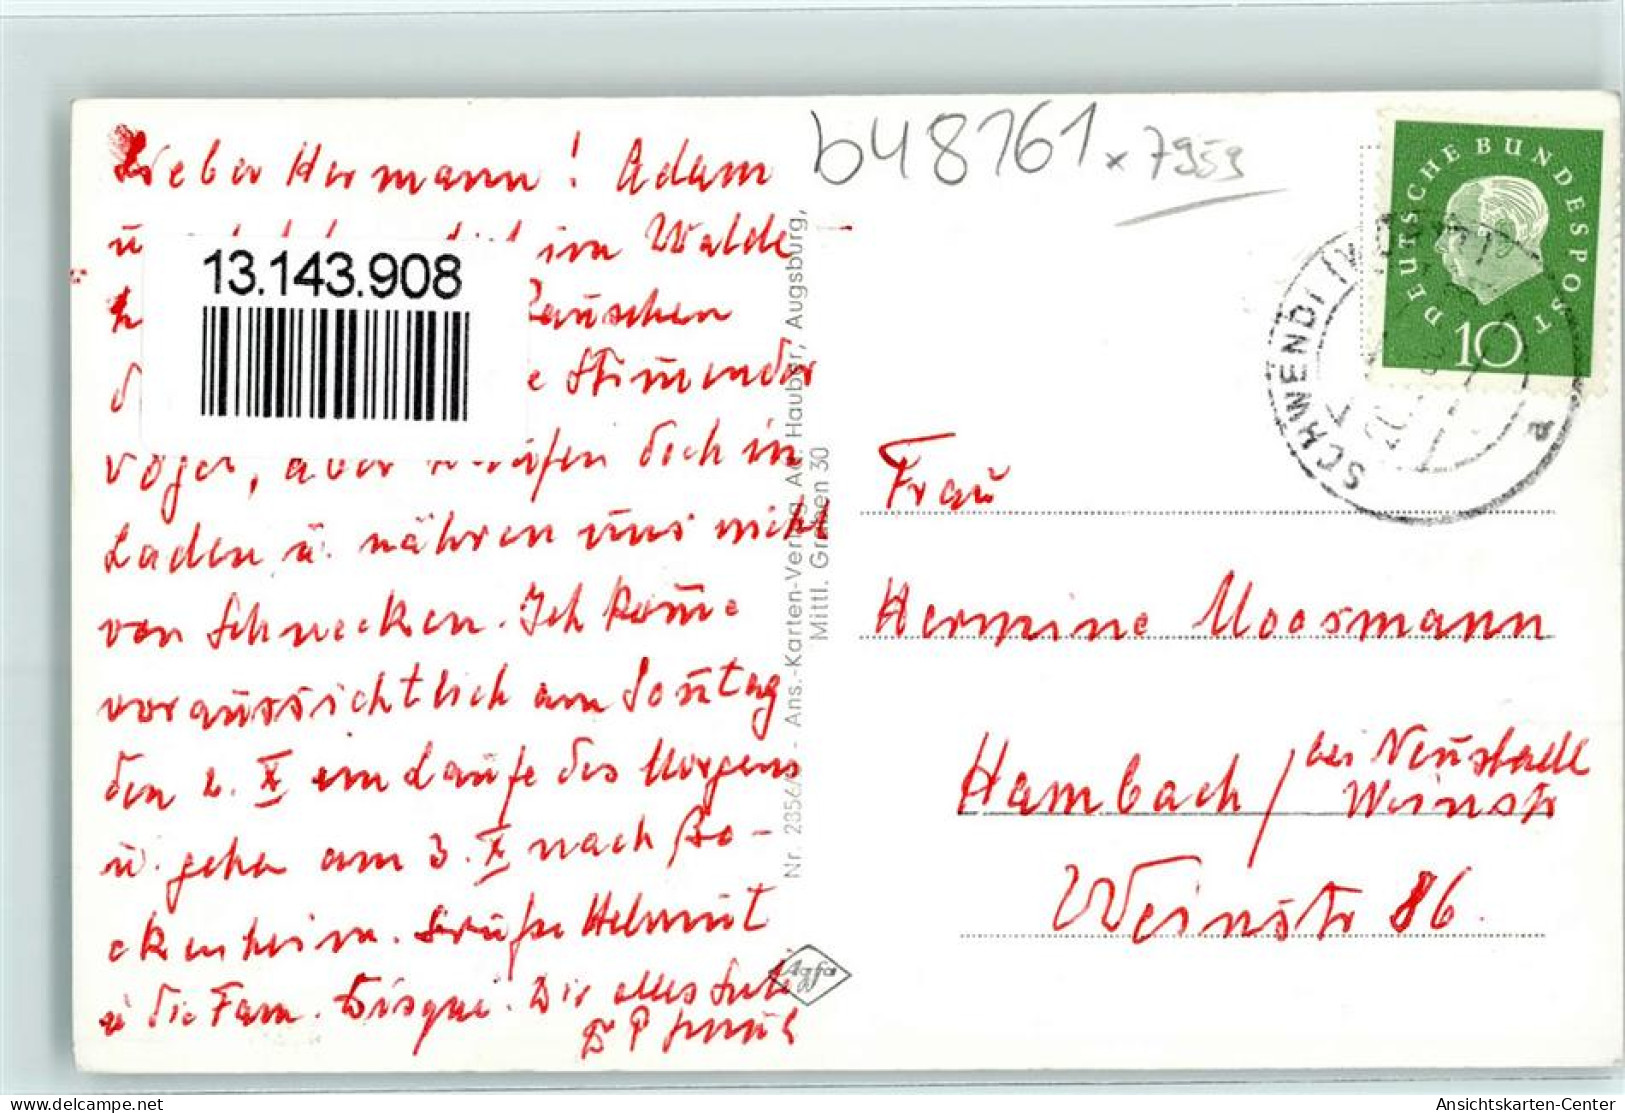 Lieber Hermann! Adam
im Walde
Rauschen
e Stimmen der
Vögel, aber dich in
Laden u. nähren uns nicht
von Schnecken. Ich komme
voraussichtlich am Sonntag
den 2. X im Laufe des Morgens
u. gehe am 3. X nach Bo-
ckenheim. Grüße Helmut
u die Fam. Disqué. Dir alles Gute
13.143.908
b48761 x 7959
Nr. 2356/ - Ans.-Karten-Verlag Ad. Hauber, Augsburg,
Mittl. Graben 30
Agfa
DEUTSCHE BUNDESPOST
10
SCHWENDI
a
Frau
Hermine Moosmann
Hambach / bei Neustadt
Weinstr
Weinstr 86.
delcampe.net
Ansichtskarten-Center